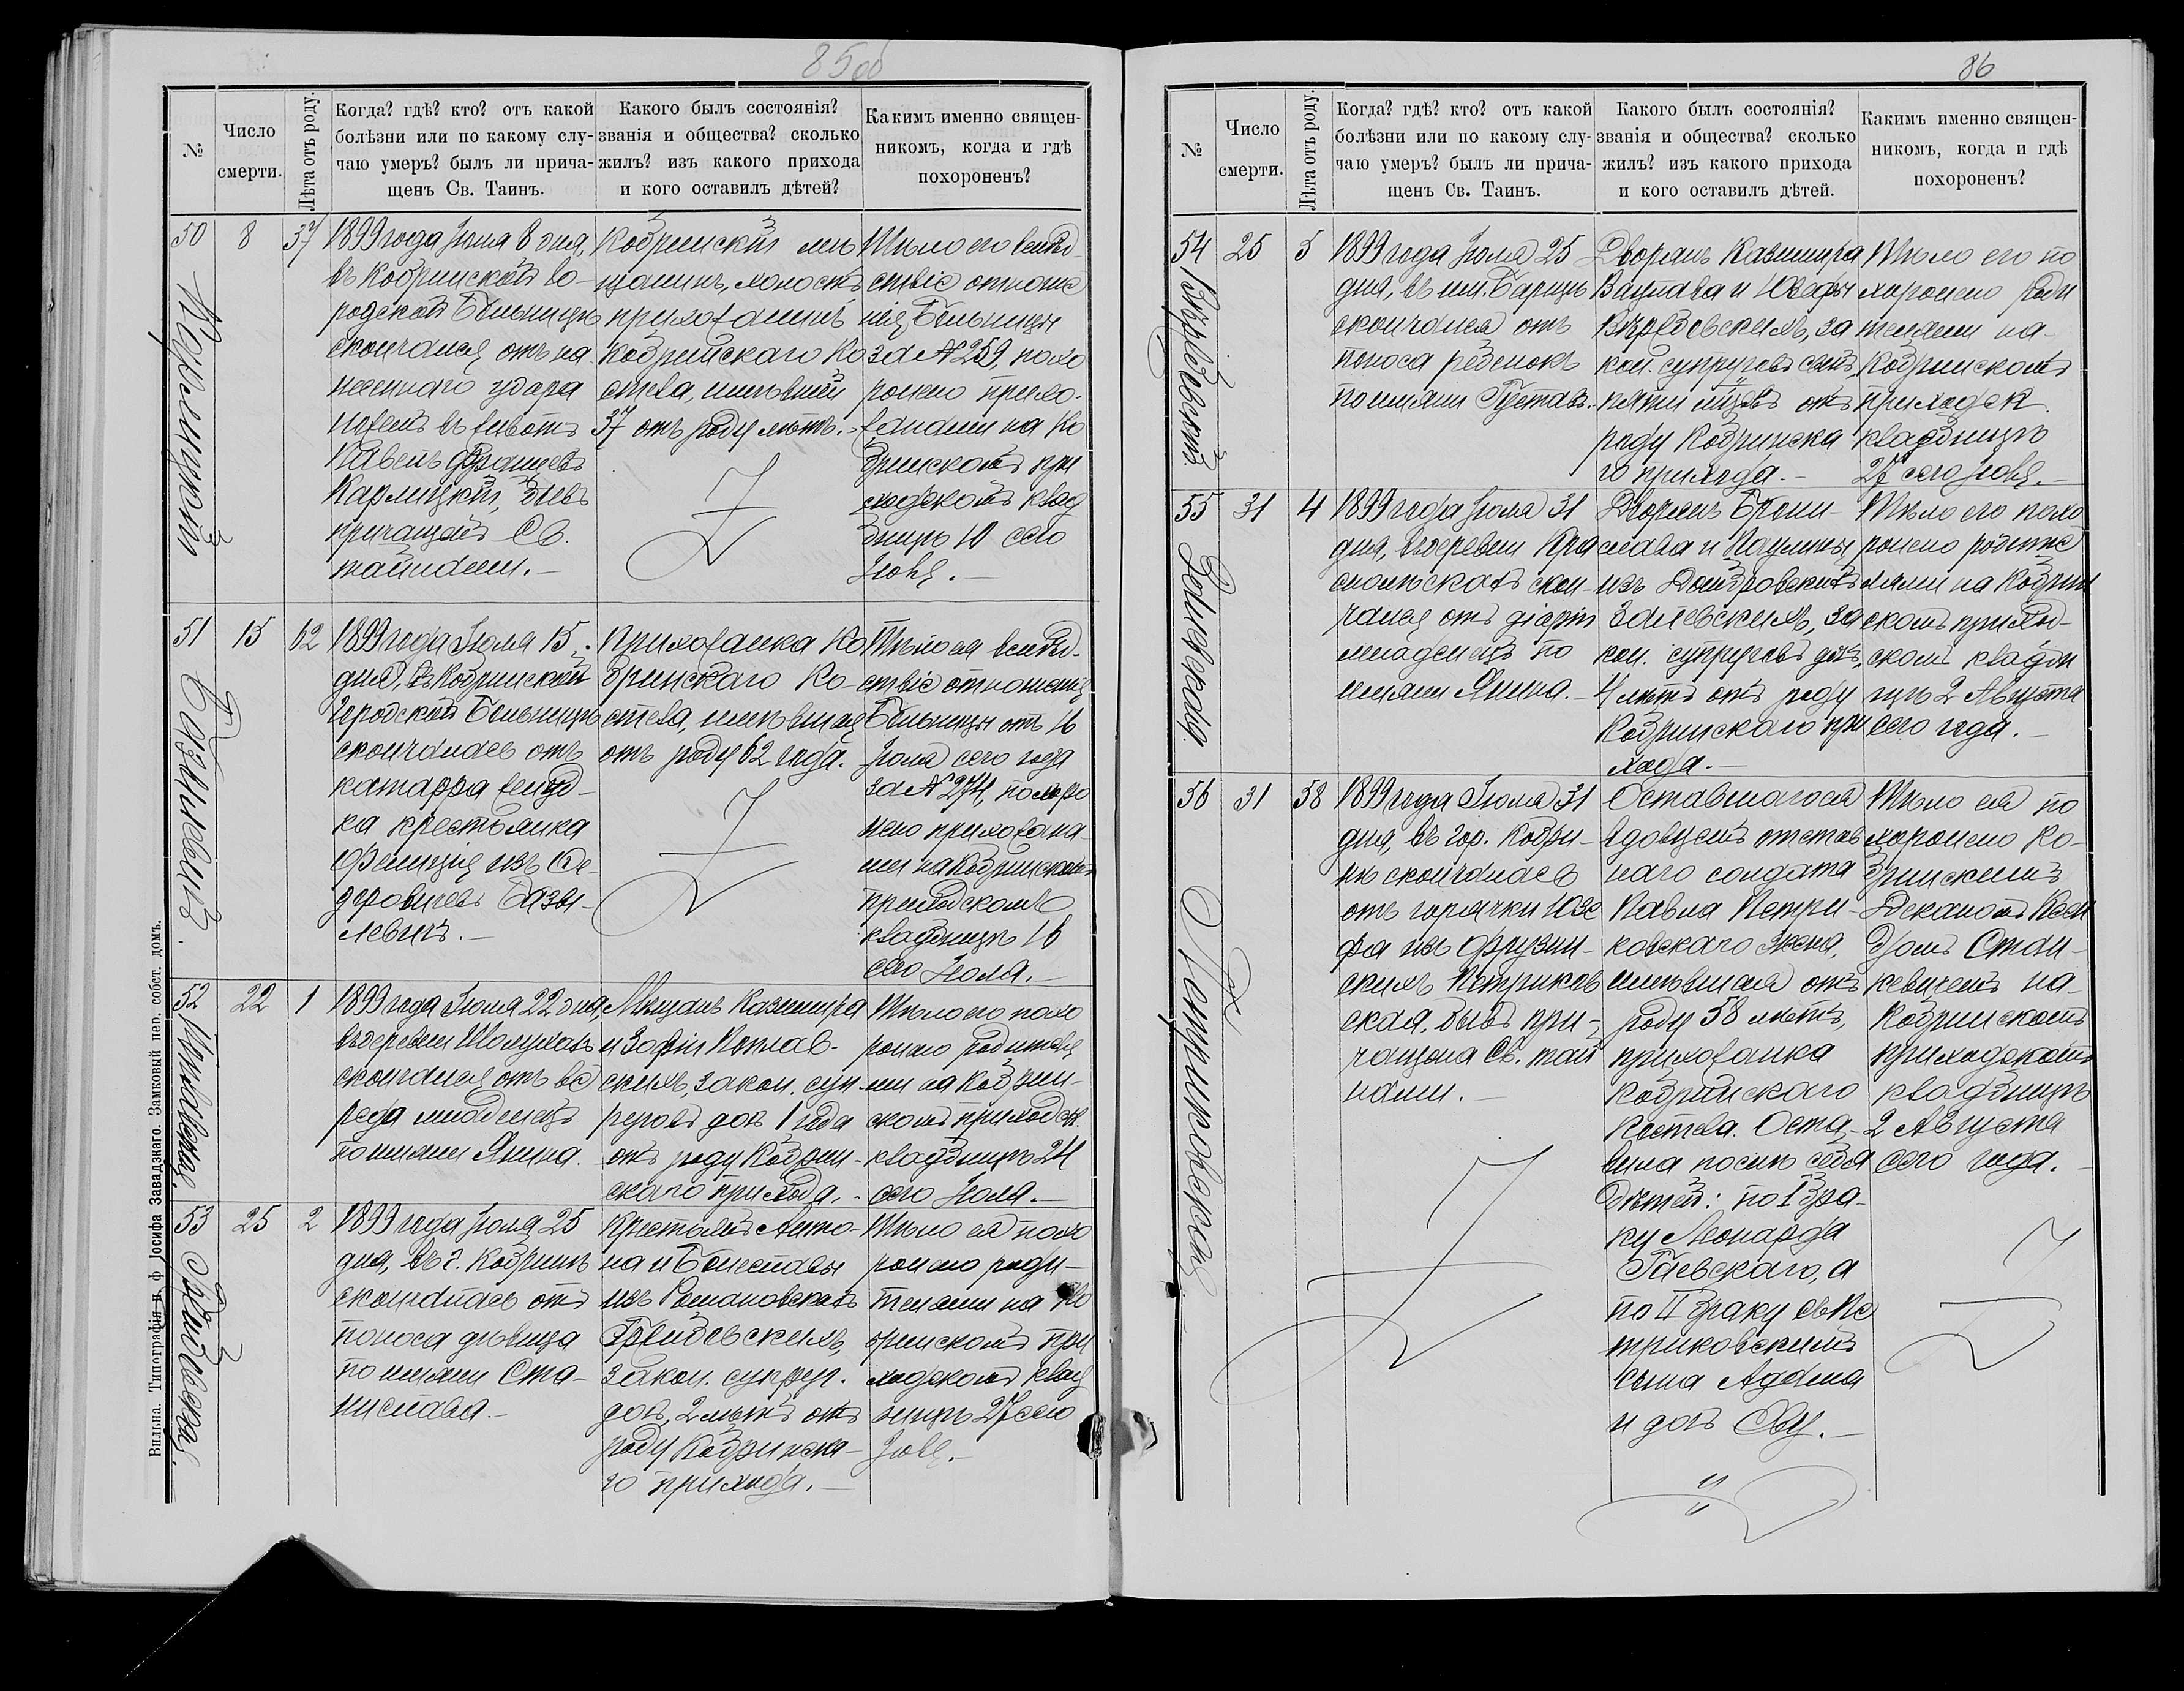 85об
№
Число
смерти.
Лѣта отъ роду.
Когда? гдѣ? кто? отъ какой
болѣзни или по какому слу-
чаю умеръ? былъ ли прича-
щенъ Св. Таинъ.
Какого былъ состоянія?
званія и общества? сколько
жилъ? изъ какого прихода
и кого оставилъ дѣтей?
Какимъ именно священ-
никомъ, когда и гдѣ
похороненъ?
50
Кармицкій
8
37
1899 года Іюля 8 дня,
въ Кобринской го-
родской Больницѣ
скончался отъ на
несеннаго удара
ножемъ въ животъ
Павелъ Францевъ
Кармицкій, бывъ
причащенъ Св.
тайнами.-
Кобринскій мѣ
щанинъ, холостъ
прихожанинъ
Кобринскаго Ко
стела, имѣвшій
37 отъ роду лѣтъ.-
Тѣло его вслѣд
ствіе отноше
нія Больницы
за № 259, похо
ронено прихо-
жанами на Ко
бринскомъ при
ходскомъ клад
бищѣ 10 сего
Іюля.-
51
Базылевичъ.
15
62
1899 года Іюля 15
дня, въ Кобринской
Городской Больницѣ
скончалась отъ
катарра желуд-
ка крестьянка
Фелиція изъ Фе-
деровичевъ Базы-
левичъ.-
Прихожанка Ко
бринскаго Ко-
стела, имѣвшая
отъ роду 62 года.
Тѣло ея вслѣд-
ствіе отношенія
Больницы отъ 16
Іюля сего года
за № 274, похоро
нено прихожана-
ми на Кобринскомъ
приходскомъ
кладбищѣ 16
сего Іюля.-
52
22
1
1899 года Іюля 22 дня,
въ деревни
скончался отъ
младенецъ
по имени Янина.
Мѣщанъ Казимира
и Зофіи
скихъ, закон. суп-
руговъ дочь 1 года
отъ роду Кобрин-
скаго прихода.-
Тѣло его похо
ронено родителя
ми на Кобрин-
скомъ приходск.
кладбищѣ 24
сего Іюля.-
53
25
2
1899 года Іюля 25
дня, въ г. Кобринѣ
скончалась отъ
поноса дѣвица
по имени Ста-
нислава.-
Крестьянъ Анто-
на и Болеславы
изъ Романовскихъ
закон. супруг.
дочь, 2 лѣтъ отъ
роду Кобринска-
го прихода.-
Тѣло ея похо
ронено роди-
телями на Ко
бринскомъ при
ходскомъ клад
бищѣ 27 сего
Іюля.-
Вильна. Типографія п. ф. Іосифа Завадзкаго. Замковый пер. собст. домъ.
86
№
Число
смерти.
Лѣта отъ роду.
Когда? гдѣ? кто? отъ какой
болѣзни или по какому слу-
чаю умеръ? былъ ли прича-
щенъ Св. Таинъ.
Какого былъ состоянія?
званія и общества? сколько
жилъ? изъ какого прихода
и кого оставилъ дѣтей.
Какимъ именно священ-
никомъ, когда и гдѣ
похороненъ?
54
25
5
1899 года Іюля 25
дня, въ им.
скончался отъ
поноса ребенокъ
по имени Густавъ.
Дворянъ Казимира
Вацлава и Юзефы
за
кон. супруговъ сынъ,
пяти мѣс. отъ
роду Кобринска
го прихода.-
Тѣло его по
хоронено роди
телями на
Кобринскомъ
приходск.
кладбищѣ
27 сего Іюля.-
55
Залевская.
31
4
1899 года Іюля 31
дня, въ деревни
скон-
чался отъ діаріи
младенецъ по
имени Янина.-
Дворянъ Брони-
слава и Паулины
изъ Домбровскихъ
Залевскихъ, за
кон. супруговъ дочь,
4 лѣтъ отъ роду
Кобринскаго при
хода.-
Тѣло его похо
ронено родите
лями на Кобрин
скомъ приход-
скомъ кладби
щѣ 2 Августа
сего года.-
56
Петриковская
31
58
1899 года Іюля 31
дня, въ гор. Кобри-
нѣ скончалась
отъ горячки Юзе
фа изъ Фрузин-
скихъ Петриков
ская, бывъ при-
чащена Св. тай
нами.-
Оставшагося
вдовцемъ отстав
наго солдата
Павла Петри-
ковскаго жена,
имѣвшая отъ
роду 58 лѣтъ,
прихожанка
Кобринскаго
Костела. Оста-
вила послѣ себя
дѣтей: по I бра-
ку Леонарда
Гаевскаго, а
по II браку съ Пе
триковскимъ
сына Адама
и дочь Еву.-
Тѣло ея по
хоронено Ко-
бринскимъ
Деканомъ
Стан-
кевичемъ на
Кобринскомъ
приходскомъ
кладбищѣ
2 Августа
сего года.-